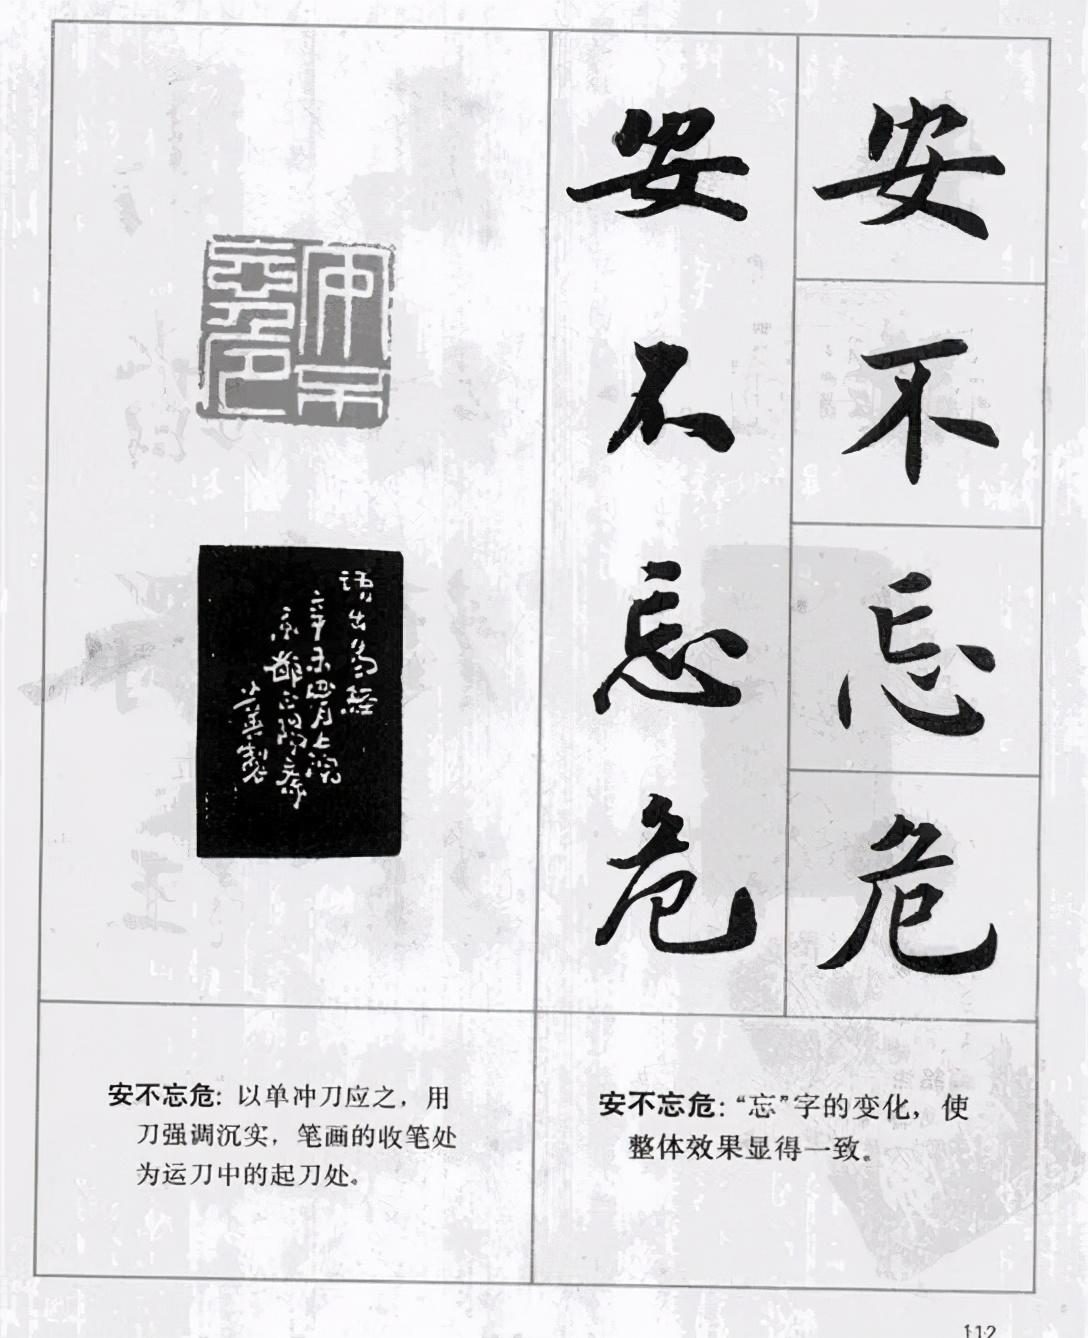 安不忘危
安不忘危
安不忘危
语出易经
辛未四月上浣
京都正阳斋
制
安不忘危：以单冲刀应之，用
刀强调沉实，笔画的收笔处
为运刀中的起刀处。
安不忘危：“忘”字的变化，使
整体效果显得一致。
112